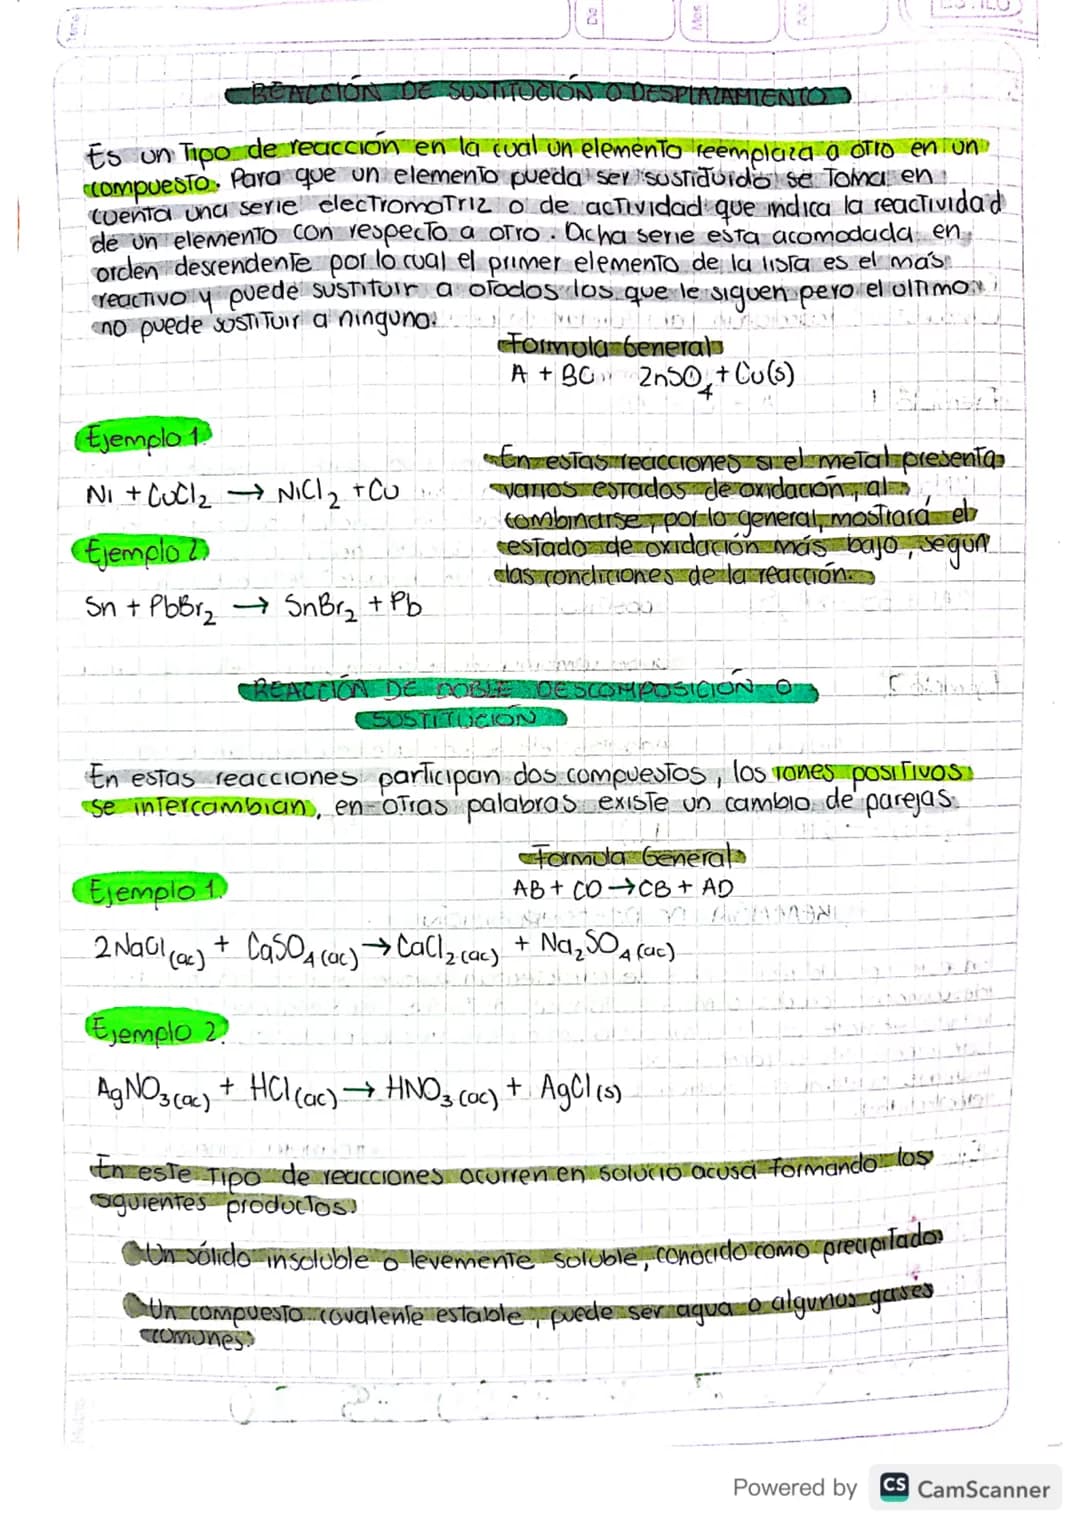 REACCIÓN DE SUSTITUCIÓN O DESPLAZAMIENTO
Es un Tipo de reacción en la cual un elemento reemplaza a otro en un
compuesto. Para que un elemento pueda ser sustiduido se Toma en
cuenta una serie electromotriz o de actividad que indica la reactividad
de un elemento con respecto a otro. Dicha serie esta acomodada en
orden descendente por lo cual el primer elemento de la lista es el más
reactivo y puede sustituir a otodos los que le siguen pero el ultimo
no puede sustituir a ninguno.
Formula General
A + BC ZnSO4 + Cu(s)
Ejemplo 1
Ni + CuCl2 → NiCl2 + Cu
En estas reacciones si el metal presenta
varios estados de oxidación, al
combinarse, por lo general, mostrará el
estado de oxidación más bajo, según
las condiciones de la reacción.
Ejemplo 2.
Sn + PbBr2 → SnBr2 + Pb
REACCIÓN DE DOBLE DESCOMPOSICIÓN O
SUSTITUCIÓN
En estas reacciones participan dos compuestos, los iones positivos
se intercambian, en otras palabras existe un cambio de parejas.
Formula General
AB + CD → CB + AD
Ejemplo 1.
2NaCl(ac) + CaSO4(ac) → CaCl2(ac) + Na2SO4(ac)
Ejemplo 2.
AgNO3(ac) + HCl(ac) → HNO3(ac) + AgCl(s)
En este Tipo de reacciones ocurren en solucio acusa formando los
siguientes productos
Un sólido insoluble o levemente soluble, conocido como precipitado
Un compuesto covalente estable, puede ser agua o algunos gases
comunes.
Powered by CS CamScanner